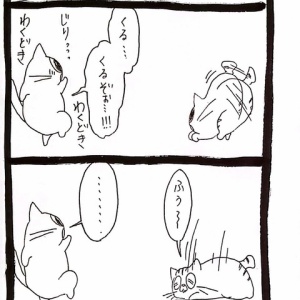 くる…
くるぞぉ…!!!
わくどき
じり…
わくどき
ふぅ〜
………